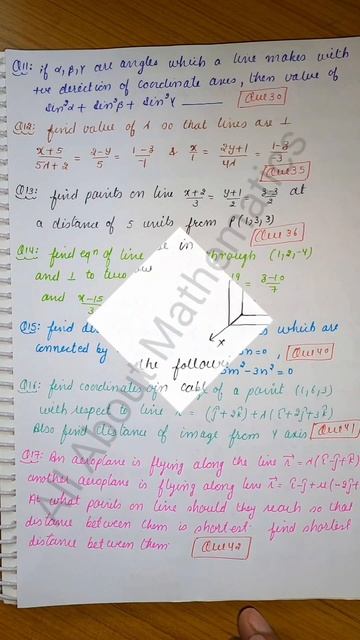 Q11: if α, β, γ are angles which a line makes with
+ve direction of coordinate axes, then value of
sin²α + sin²β + sin²γ ____ Que 30
Q12: find value of λ so that lines are ⊥
(x+5)/(5λ+2) = (2-y)/5 = (1-z)/-1 & x/1 = (2y+1)/4λ = (1-z)/
Que 35
Q13: find points on line (x+2)/3 = (y+1)/2 = (z-3)/2 at
a distance of 5 units from P(1,3,3)
Que 36
Q14: find eqn of line in through (1,2,-4)
and ⊥ to two 19 = (z-10)/7
and (x-15)/3
Q15: find di which are
connected by n=0, Que 40
the followi m²-3n²=0
Q16: find coordinates of a point (1,6,3)
in cabl
with respect to line r = (ĵ+2k̂)+λ(î+2ĵ+3k̂)
Also find distance of image from Y axis Que 41
Q17: An aeroplane is flying along the line r⃗ = λ(î-ĵ+k̂)
another aeroplane is flying along line r⃗ = î-ĵ+μ(-2ĵ+
At what points on line should they reach so that
distance between them is shortest find shortest
distance between them Que 42
x
All About Mathematics